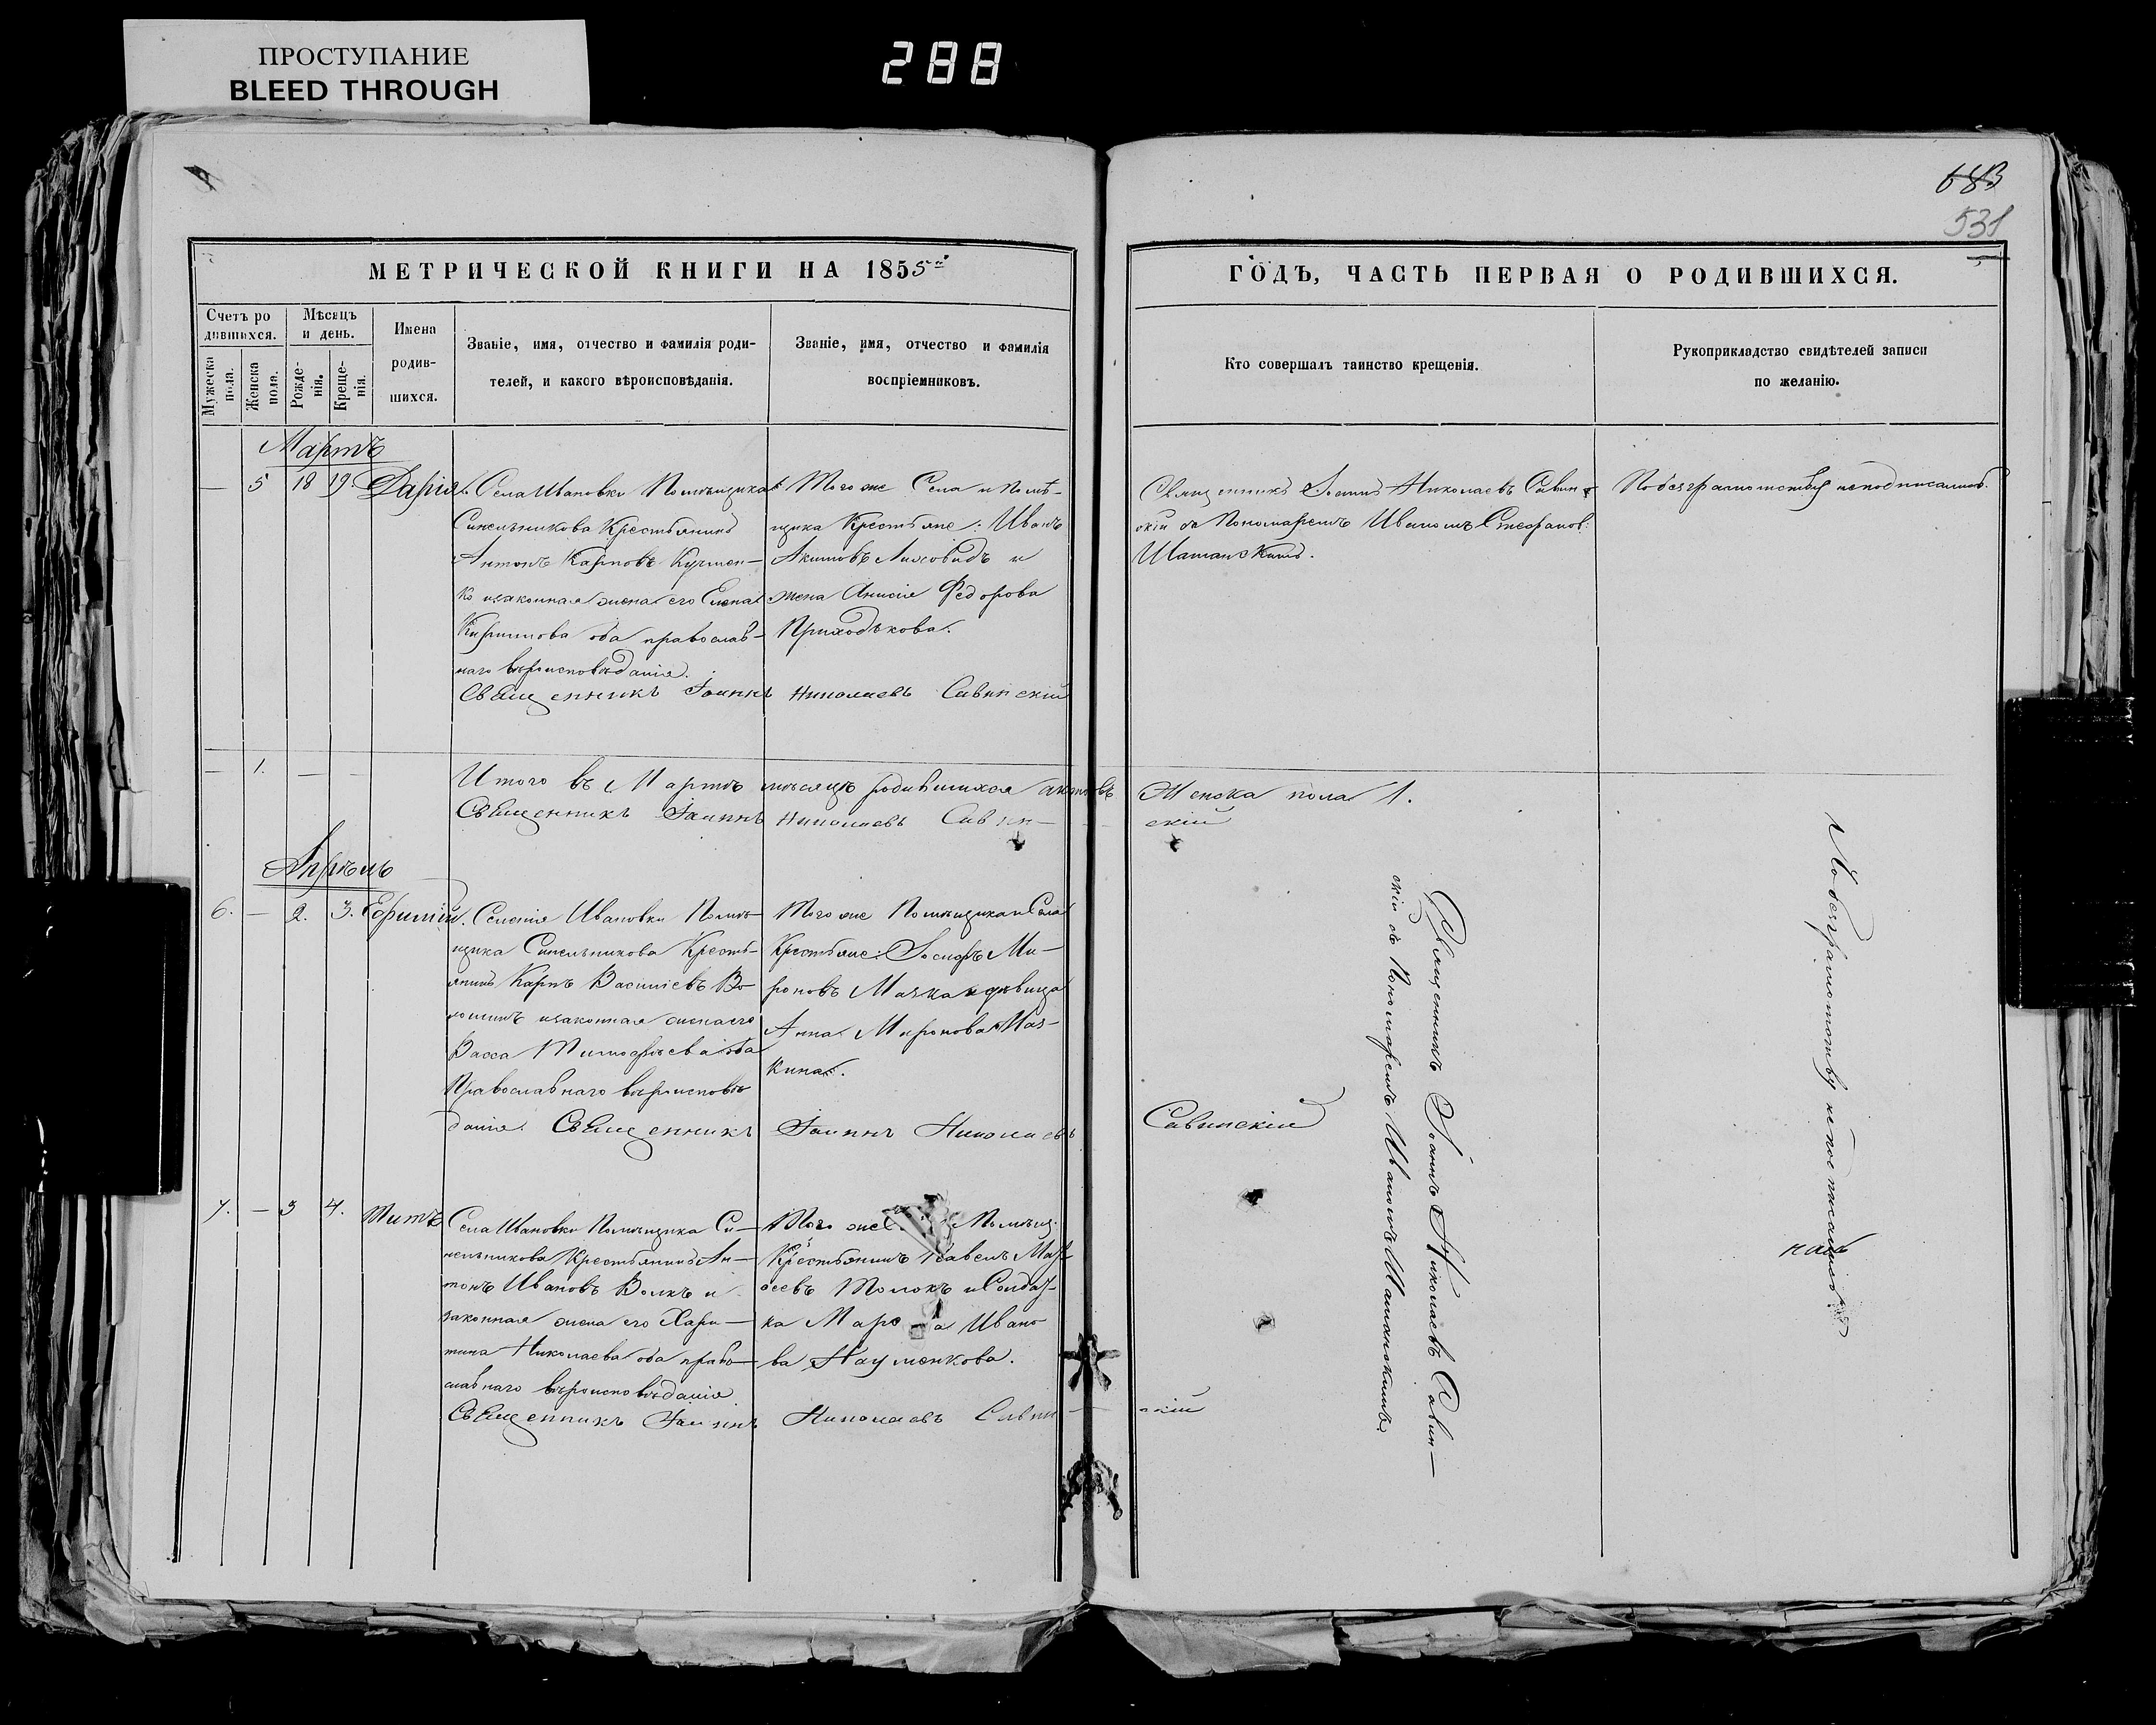 ПРОСТУПАНИЕ
BLEED THROUGH
288
683
531
МЕТРИЧЕСКОЙ КНИГИ НА 1855й
ГОДЪ, ЧАСТЬ ПЕРВАЯ О РОДИВШИХСЯ.
Счетъ ро
дившихся.
Мужеска
пола.
Женска
пола.
Мѣсяцъ
и день.
Рожде-
нія.
Креще-
нія.
Имена
родив-
шихся.
Званіе, имя, отчество и фамилія роди-
телей, и какого вѣроисповѣданія.
Званіе, имя, отчество и фамилія
воспріемниковъ.
Кто совершалъ таинство крещенія.
Рукоприкладство свидѣтелей записи
по желанію.
Мартъ
— 5 18 19 Дарія
Села Ивановки Помѣщика
Синельникова Крестьянинъ
Антонъ Карповъ
ко изаконная жена его Елена
оба православ-
наго вѣроисповѣданія.
Того же Села и Помѣ-
щика Крестьяне: Иванъ
Акимовъ Лиховидъ и
жена Анисія Федорова
Приходькова.
Священникъ Іоаннъ Николаевъ Савинскій
Священникъ Іоаннъ Николаевъ Савин-
скій съ Пономаремъ Иваномъ Стефанов:
Шатанскимъ.
По безграмотству неподписались.
— 1. — —
Итого въ Мартѣ мѣсяцѣ родившихся актовъ Женска пола 1.
Священникъ Іоаннъ Николаевъ Савин- скій
Апрѣль
6. — 2. 3. Ефимій.
Селенія Ивановки Помѣ-
щика Синельникова Кресть-
янинъ Карпъ Василіевъ Во-
лошинъ изаконная жена его
Васса Тимофѣева оба
Православнаго вѣроисповѣ
данія. Священникъ Іоаннъ Николаевъ Савинскій
Того же Помѣщика и Села
Крестьяне: Іосифъ Ми-
роновъ Мачка и дѣвица
Анна Миронова Мач-
кина.
Священникъ Іоаннъ Николаевъ Савин-
скій съ Пономаремъ Иваномъ Шатанскимъ.
По безграмотству неподписались
7. — 3 4. Титъ
Села Ивановки Помѣщика Си-
нельникова Крестьянинъ Ан-
тонъ Ивановъ Волкъ и
законная жена его Хари-
тина Николаева оба право-
славнаго вѣроисповѣданія.
Того же Помѣщ.
Крестьянинъ Павелъ
Толокъ и Солдат-
ка Ивано-
ва Науменкова.
Священникъ Іоаннъ Николаевъ Савин- скій